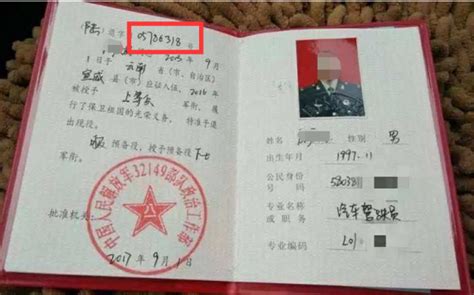 陆 退字 05736318 号
2015 年 9 月
1 日于 云南 省(市、自治区)
宣威 县(市)应征入伍,2016 年
被授予 上等兵 军衔,履
行了保卫祖国的光荣义务,特准予退
出现役。
服 预备役,授予预备役 下士
军衔。
中国人民解放军32149部队政治工作部
批准机关:
2017 年 9 月 1 日
姓名
性别 男
出生年月 1997.11
公民身份
号码 53038
专业名称
或职务 汽车驾驶员
专业编码 L01